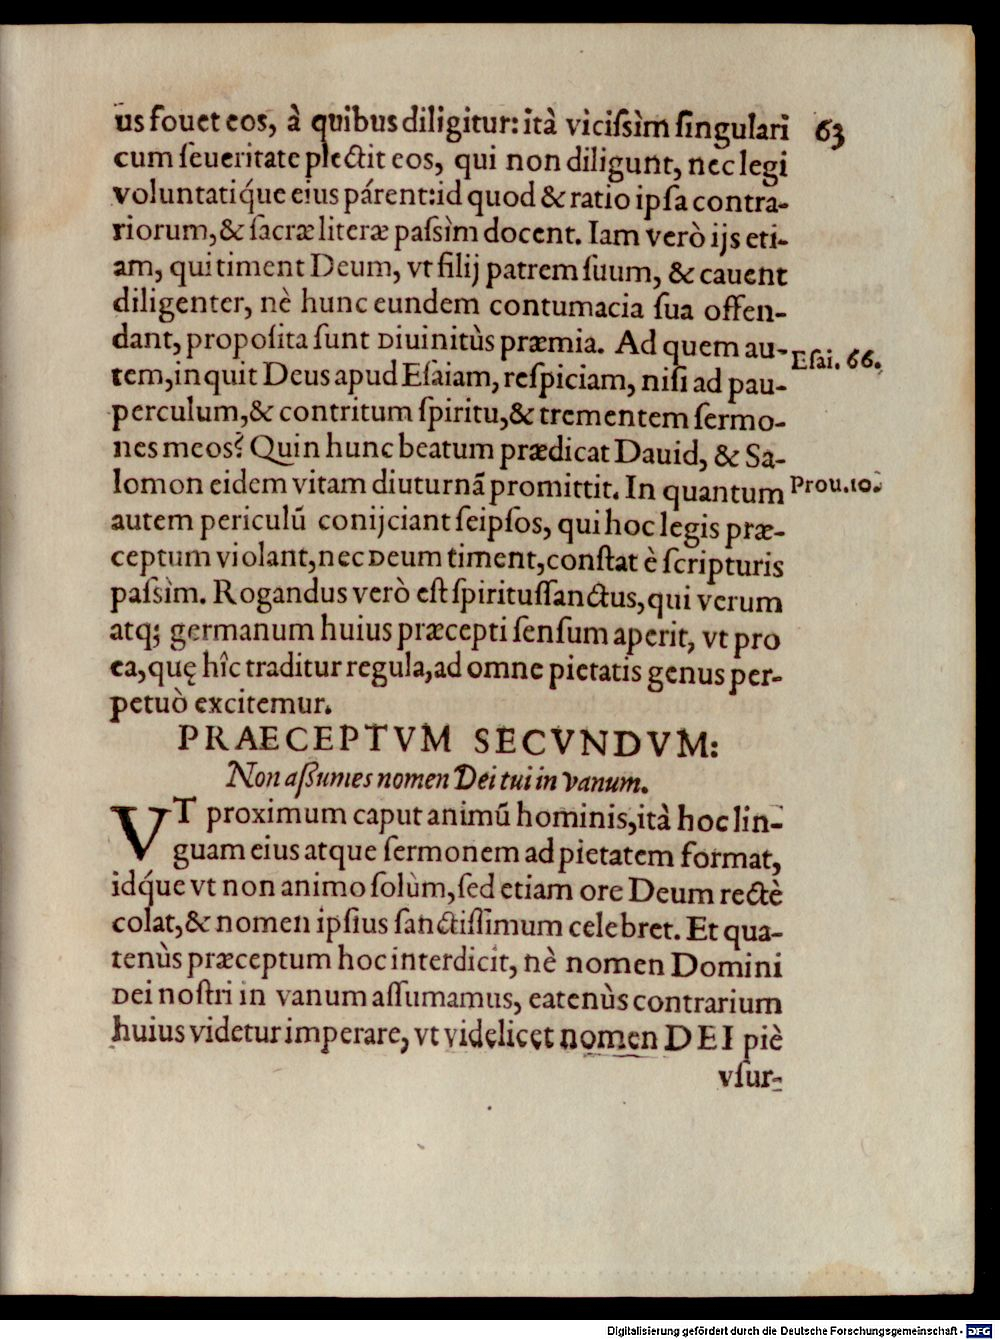 us fouet eos, à quibus diligitur: ità viciſsìm ſingulari 63
cum ſeueritate plectit eos, qui non diligunt, nec legi
voluntatiq́ue eius párent: id quod & ratio ipſa contra-
riorum, & ſacræ literæ paſsìm docent. Iam verò ijs eti-
am, qui timent Deum, vt filij patrem ſuum, & cauent
diligenter, nè hunc eundem contumacia ſua offen-
dant, propoſita ſunt Diuinitùs præmia. Ad quem au- Eſai. 66.
tem, inquit Deus apud Eſaiam, reſpiciam, niſi ad pau-
perculum, & contritum ſpiritu, & trementem ſermo-
nes meos? Quin hunc beatum prædicat Dauid, & Sa-
lomon eidem vitam diuturnã promittit. In quantum Prou. 10.
autem periculũ conijciant ſeipſos, qui hoc legis præ-
ceptum violant, nec Deum timent, conſtat è ſcripturis
paſsìm. Rogandus verò eſt ſpirituſſanctus, qui verum
atq; germanum huius præcepti ſenſum aperit, vt pro
ea, quę hîc traditur regula, ad omne pietatis genus per-
petuò excitemur.
PRAECEPTVM SECVNDVM:
Non aßumes nomen Dei tui in vanum.
VT proximum caput animũ hominis, ità hoc lin-
guam eius atque ſermonem ad pietatem format,
idq́ue vt non animo ſolùm, ſed etiam ore Deum rectè
colat, & nomen ipſius ſanctiſſimum celebret. Et qua-
tenùs præceptum hoc interdicit, nè nomen Domini
Dei noſtri in vanum aſſumamus, eatenùs contrarium
huius videtur imperare, vt videlicet nomen DEI piè
vſur-
Digitalisierung gefördert durch die Deutsche Forschungsgemeinschaft - DFG